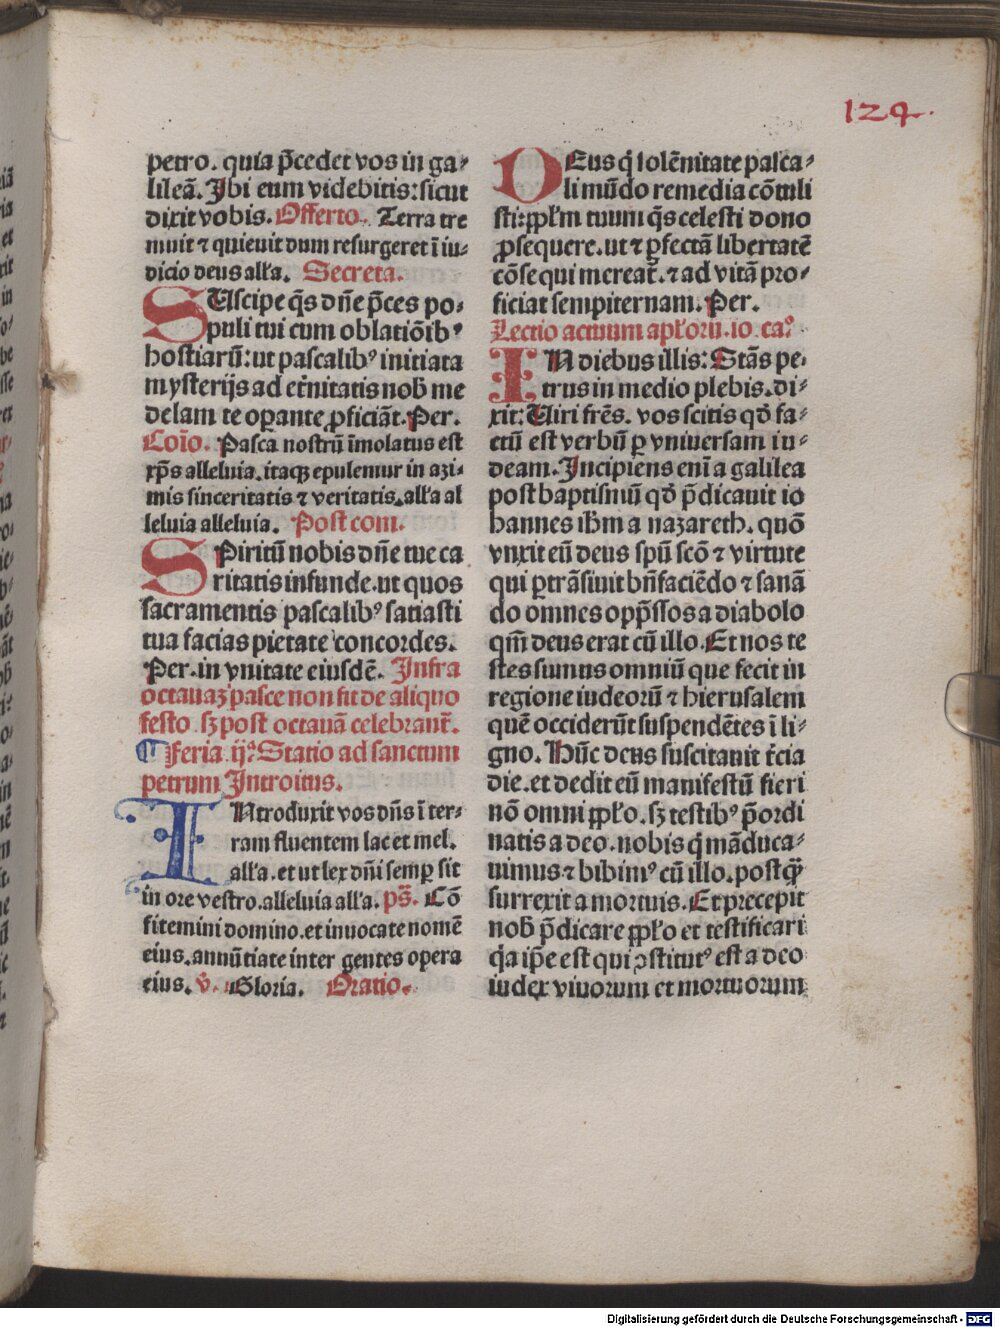 124.
petro. quia p̄cedet vos in ga⸗
lileā. Ibi eum videbitis: sicut
dixit vobis. Offerto. Terra tre
muit ⁊ quieuit dum resurgeret ī iu⸗
dicio deus all'a. Secreta.
SUscipe q̄s dn̄e p̄ces po⸗
puli tui cum oblatiōibꝰ
hostiarū: ut pascalibꝰ initiata
mysterijs ad et̄nitatis nob̄ me
delam te oꝑante ꝓficiāt. Per.
Coīo. Pasca nostrū īmolatus est
xp̄s alleluia. itaqꝫ epulemur in azi⸗
mis sinceritatis ⁊ veritatis. all'a al
leluia alleluia. Post com.
SPiritū nobis dn̄e tue ca
ritatis infunde. ut quos
sacramentis pascalibꝰ satiasti
tua facias pietate concordes.
Per. in vnitate eiusdē. Infra
octauaꝫ pasce non fit de aliquo
festo. sꝫ post octauā celebrant̄.
¶ Feria ij.ᵃ Statio ad sanctum
petrum Introitus.
INtroduxit vos dn̄s ī ter⸗
ram fluentem lac et mel.
all'a. et ut lex dn̄i semꝑ sit
in ore vestro. alleluia all'a. ps̄. Cō
fitemini domino. et inuocate nomē
eius. annūtiate inter gentes opera
eius. v̄. Gloria. Oratio.
DEus q̇ solēnitate pasca⸗
li mūdo remedia cōtuli
sti: ppl'm tuum q̄s celesti dono
ꝓsequere. ut ⁊ ꝑfectā libertatē
cōsequi mereat̄. ⁊ ad vitā pro⸗
ficiat sempiternam. Per.
Lectio actuum apl'orū. io. ca.ᵒ
IN diebus illis: Stās pe⸗
trus in medio plebis. di⸗
xit: Uiri fr̄es. vos scitis qd̄ fa⸗
ctū est verbū ꝑ vniuersam iu⸗
deam. Incipiens enī a galilea
post baptismū qd̄ p̄dicauit io
hannes ih̄m a nazareth. quō
vnxit eū deus spū scō ⁊ virtute
qui ꝑtrāsiuit bn̄faciēdo ⁊ sanā
do omnes opp̄ssos a diabolo
qm̄ deus erat cū illo. Et nos te
stes sumus omniū que fecit in
regione iudeorū ⁊ hierusalem
quē occiderūt suspendētes ī li⸗
gno. Hūc deus suscitauit t̄cia
die. et dedit eū manifestū fieri
nō omni ppl'o. sꝫ testibꝰ p̄ordi
natis a deo. nobis q̇ māduca⸗
uimus ⁊ bibimꝰ cū illo. postꝙ̄
surrexit a mortuis. Et precepit
nob̄ p̄dicare ppl'o et testificari
q̇a ip̄e est qui ꝯstitutꝰ est a deo
iudex viuorum et mortuorum
Digitalisierung gefördert durch die Deutsche Forschungsgemeinschaft - DFG